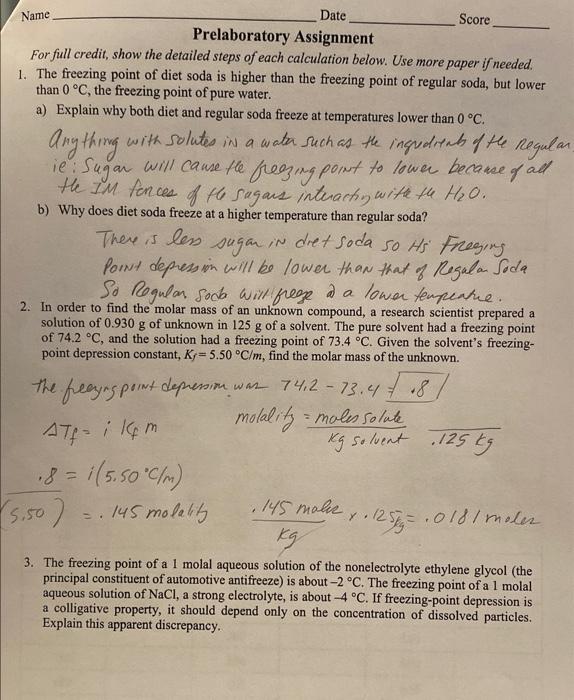 Name Date Score
Prelaboratory Assignment
For full credit, show the detailed steps of each calculation below. Use more paper if needed.
1. The freezing point of diet soda is higher than the freezing point of regular soda, but lower
than 0 °C, the freezing point of pure water.
a) Explain why both diet and regular soda freeze at temperatures lower than 0 °C.
Anything with solutes in a water such as the ingredients of the Regular
ie: Sugar will cause the freezing point to lower because of all
the IM forces of the sugars interacting with the H2O.
b) Why does diet soda freeze at a higher temperature than regular soda?
There is less sugar in diet soda so its Freezing
Point depression will be lower than that of Regular Soda
So Regular Soda will freeze @ a lower temperature.
2. In order to find the molar mass of an unknown compound, a research scientist prepared a
solution of 0.930 g of unknown in 125 g of a solvent. The pure solvent had a freezing point
of 74.2 °C, and the solution had a freezing point of 73.4 °C. Given the solvent's freezing-
point depression constant, Kf = 5.50 °C/m, find the molar mass of the unknown.
The freezing point depression was 74.2 - 73.4 = .8
ΔTf = i Kf m molality = moles solute
Kg solvent .125 kg
.8 = i(5.50 °C/m)
(5.50) = .145 molality .145 moles x .125 kg = .0181 moles
Kg
3. The freezing point of a 1 molal aqueous solution of the nonelectrolyte ethylene glycol (the
principal constituent of automotive antifreeze) is about –2 °C. The freezing point of a 1 molal
aqueous solution of NaCl, a strong electrolyte, is about –4 °C. If freezing-point depression is
a colligative property, it should depend only on the concentration of dissolved particles.
Explain this apparent discrepancy.